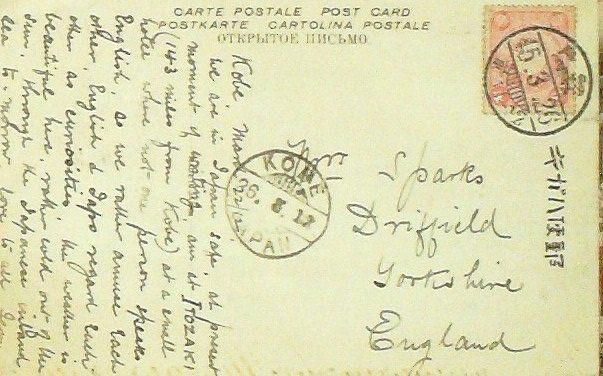 CARTE POSTALE POST CARD
POSTKARTE CARTOLINA POSTALE
ОТКРЫТОЕ ПИСЬМО
Kobe March
we are in Japan safe, at present
moment of writing am at ITOZAKI
(143 miles from Kobe) at a small
hotel where not one person speaks
English, as we rather amuse each
other English & Japs regard each
other as curiosities the weather is
beautiful here, rather cold out of the
sun, through the Japanese inland
sea to-morrow love to all
Sparks
Driffield
Yorkshire
England
KOBE
26.3.12
JAPAN
45.3.26